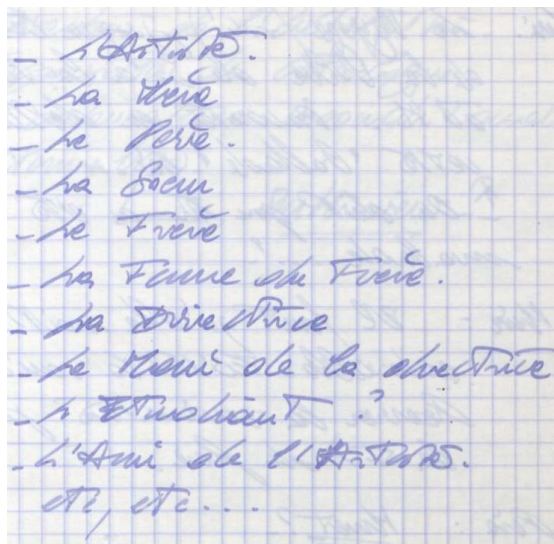 - L'Artiste.
- La Mère
- Le Père.
- La Soeur
- Le Frère
- La Femme du Frère.
- La Directrice
- Le Mari de la directrice
- L'Etudiant ?
- L'Ami de l'Artiste.
etc, etc....